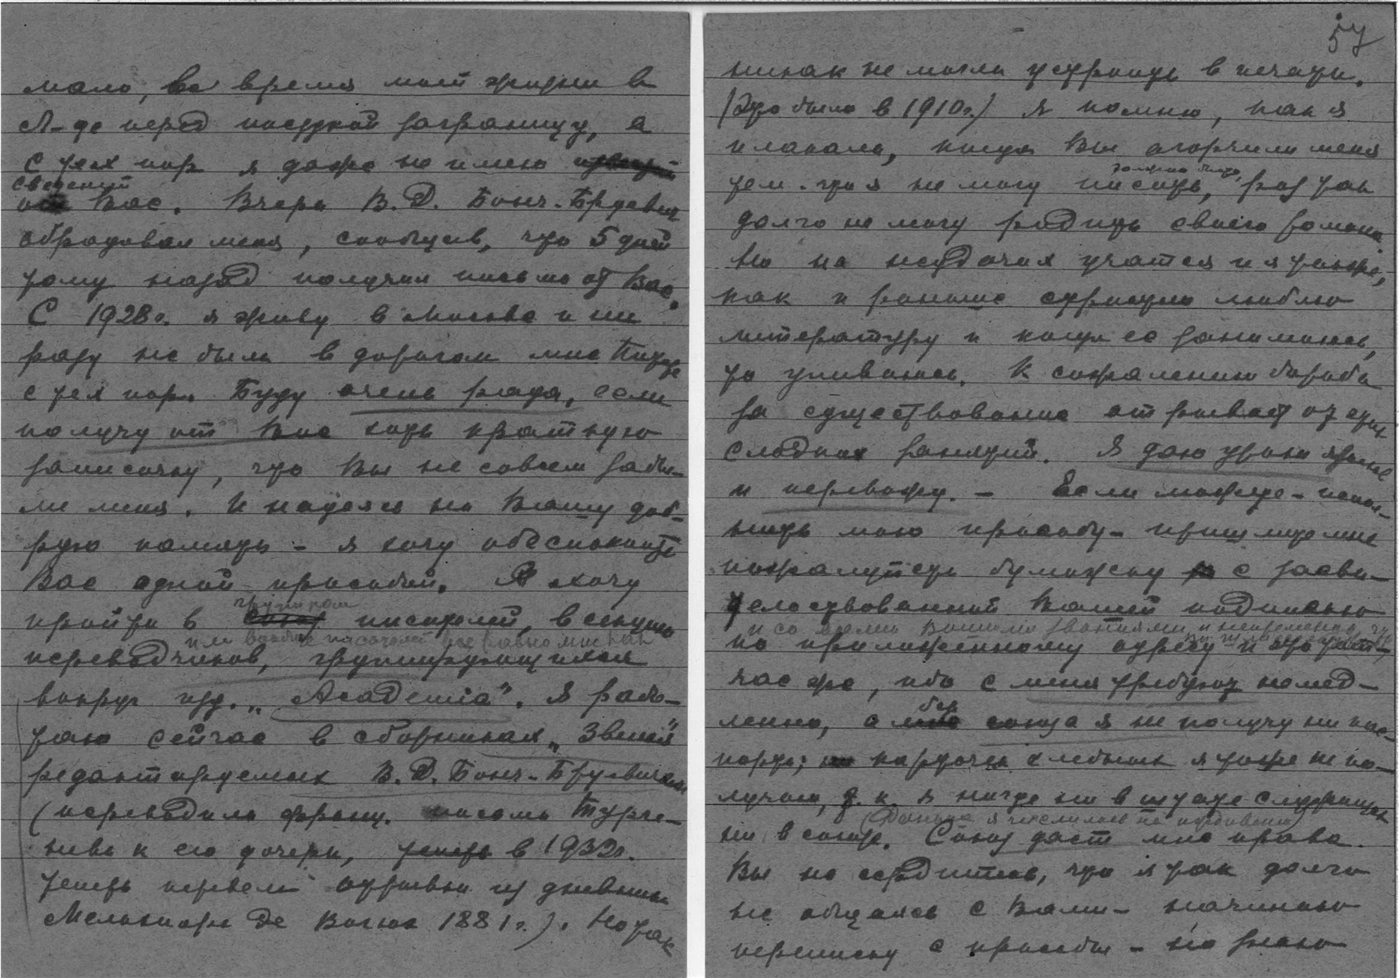 мало, во время моей жизни в
Л-де перед поездкой заграницу, а
с тех пор я даже не имею
сведений
от Вас. Вчера В. Д. Бонч-Бруевич
обрадовал меня, сообщив, что 5 дней
тому назад получил письмо от Вас.
С 1928 г. я живу в Москве и ни
разу не была в дорогом мне
с тех пор. Буду очень рада, если
получу от Вас хоть краткую
записочку, что Вы не совсем забы-
ли меня. И надеясь на Вашу доб-
рую память – я хочу обеспокоить
Вас одной просьбой. Я хочу
группком
пройти в союз писателей, в секцию
переводчиков, группирующихся
вокруг изд. „Academia". Я рабо-
таю сейчас в сборниках „Звенья"
редактируемых В. Д. Бонч-Бруевичем
(переводила франц. письма Турге-
нева к его дочери, теперь в 1932 г.
теперь перевела отрывки из дневника
Мельхиора де Вогюэ 1881 г.). Но так
57
никак не могла устроить в печати.
(Это было в 1910 г.) Я помню, как я
плакала, когда Вы огорчили меня
должно быть,
тем что я не могу писать, раз так
долго не могу родить своего романа.
Но на неудачах учатся и я тоже,
как и раньше страстно люблю
литературу и когда ею занимаюсь,
то упиваюсь. К сожалению борьба
за существование отрывает от этих
сладких занятий. Я даю уроки языков
и перевожу. – Если можете – испол-
нить мою просьбу – пришлите мне
пожалуйста бумажку с засви-
детельствованной Вашей подписью
и со всеми Вашими званиями и
по приложенному адресу и
час же, ибо с меня требуют немед-
без
ленно, а союза я не получу ни пас-
порта; карточки хлебной я тоже не по-
лучаю, т. к. я нигде ни в штате служащих
(Раньше я числилась на иждивении)
ни в союзе. Союз даст мне права.
Вы не сердитесь, что я так долго
не общаясь с Вами – начинаю
переписку с просьбы – но знаю